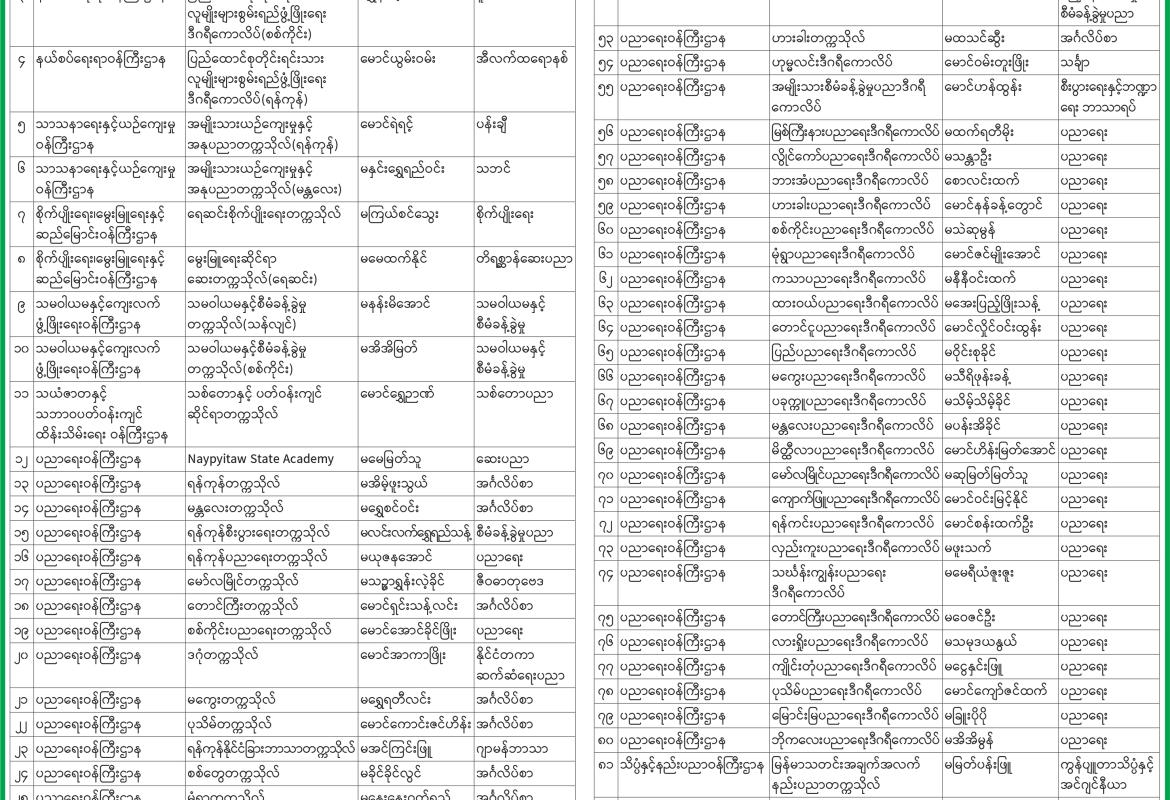 လူမျိုးများစွမ်းရည်ဖွံ့ဖြိုးရေး
ဒီဂရီကောလိပ်(စစ်ကိုင်း)
၄ နယ်စပ်ရေးရာဝန်ကြီးဌာန ပြည်ထောင်စုတိုင်းရင်းသား မောင်ယွမ်းဝမ်း အီလက်ထရောနစ်
လူမျိုးများစွမ်းရည်ဖွံ့ဖြိုးရေး
ဒီဂရီကောလိပ်(ရန်ကုန်)
၅ သာသနာရေးနှင့်ယဉ်ကျေးမှု အမျိုးသားယဉ်ကျေးမှုနှင့် မောင်ရဲရင့် ပန်းချီ
ဝန်ကြီးဌာန အနုပညာတက္ကသိုလ်(ရန်ကုန်)
၆ သာသနာရေးနှင့်ယဉ်ကျေးမှု အမျိုးသားယဉ်ကျေးမှုနှင့် မနှင်းရွှေရည်ဝင်း သဘင်
ဝန်ကြီးဌာန အနုပညာတက္ကသိုလ်(မန္တလေး)
၇ စိုက်ပျိုးရေး၊မွေးမြူရေးနှင့် ရေဆင်းစိုက်ပျိုးရေးတက္ကသိုလ် မကြယ်စင်သွေး စိုက်ပျိုးရေး
ဆည်မြောင်းဝန်ကြီးဌာန
၈ စိုက်ပျိုးရေး၊မွေးမြူရေးနှင့် မွေးမြူရေးဆိုင်ရာ မမေထက်နိုင် တိရစ္ဆာန်ဆေးပညာ
ဆည်မြောင်းဝန်ကြီးဌာန ဆေးတက္ကသိုလ်(ရေဆင်း)
၉ သမဝါယမနှင့်ကျေးလက် သမဝါယမနှင့်စီမံခန့်ခွဲမှု မနန်းမိအောင် သမဝါယမနှင့်
ဖွံ့ဖြိုးရေးဝန်ကြီးဌာန တက္ကသိုလ်(သန်လျင်) စီမံခန့်ခွဲမှု
၁၀ သမဝါယမနှင့်ကျေးလက် သမဝါယမနှင့်စီမံခန့်ခွဲမှု မအိအိမြတ် သမဝါယမနှင့်
ဖွံ့ဖြိုးရေးဝန်ကြီးဌာန တက္ကသိုလ်(စစ်ကိုင်း) စီမံခန့်ခွဲမှု
၁၁ သယံဇာတနှင့် သစ်တောနှင့် ပတ်ဝန်းကျင် မောင်ရွှေဉာဏ် သစ်တောပညာ
သဘာဝပတ်ဝန်းကျင် ဆိုင်ရာတက္ကသိုလ်
ထိန်းသိမ်းရေး ဝန်ကြီးဌာန
၁၂ ပညာရေးဝန်ကြီးဌာန Naypyitaw State Academy မမေမြတ်သူ ဆေးပညာ
၁၃ ပညာရေးဝန်ကြီးဌာန ရန်ကုန်တက္ကသိုလ် မအိမ့်ဖူးသွယ် အင်္ဂလိပ်စာ
၁၄ ပညာရေးဝန်ကြီးဌာန မန္တလေးတက္ကသိုလ် မရွှေစင်ဝင်း အင်္ဂလိပ်စာ
၁၅ ပညာရေးဝန်ကြီးဌာန ရန်ကုန်စီးပွားရေးတက္ကသိုလ် မလင်းလက်ရွှေရည်သန့် စီမံခန့်ခွဲမှုပညာ
၁၆ ပညာရေးဝန်ကြီးဌာန ရန်ကုန်ပညာရေးတက္ကသိုလ် မယုဇနအောင် ပညာရေး
၁၇ ပညာရေးဝန်ကြီးဌာန မော်လမြိုင်တက္ကသိုလ် မသဥ္ဇာရွှန်းလဲ့ခိုင် ဇီဝဓာတုဗေဒ
၁၈ ပညာရေးဝန်ကြီးဌာန တောင်ကြီးတက္ကသိုလ် မောင်ရှင်းသန့်လင်း အင်္ဂလိပ်စာ
၁၉ ပညာရေးဝန်ကြီးဌာန စစ်ကိုင်းပညာရေးတက္ကသိုလ် မောင်အောင်ခိုင်ဖြိုး ပညာရေး
၂၀ ပညာရေးဝန်ကြီးဌာန ဒဂုံတက္ကသိုလ် မောင်အာကာဖြိုး နိုင်ငံတကာ
ဆက်ဆံရေးပညာ
၂၁ ပညာရေးဝန်ကြီးဌာန မကွေးတက္ကသိုလ် မရွှေရတီလင်း အင်္ဂလိပ်စာ
၂၂ ပညာရေးဝန်ကြီးဌာန ပုသိမ်တက္ကသိုလ် မောင်ကောင်းဇင်ဟိန်း အင်္ဂလိပ်စာ
၂၃ ပညာရေးဝန်ကြီးဌာန ရန်ကုန်နိုင်ငံခြားဘာသာတက္ကသိုလ် မအင်ကြင်းဖြူ ဂျာမန်ဘာသာ
၂၄ ပညာရေးဝန်ကြီးဌာန စစ်တွေတက္ကသိုလ် မခိုင်ခိုင်လွင် အင်္ဂလိပ်စာ
စီမံခန့်ခွဲမှုပညာ
၅၃ ပညာရေးဝန်ကြီးဌာန ဟားခါးတက္ကသိုလ် မထသင်ဆွီး အင်္ဂလိပ်စာ
၅၄ ပညာရေးဝန်ကြီးဌာန ဟုမ္မလင်းဒီဂရီကောလိပ် မောင်ဝမ်းတူးဖြိုး သင်္ချာ
၅၅ ပညာရေးဝန်ကြီးဌာန အမျိုးသားစီမံခန့်ခွဲမှုပညာဒီဂရီ မောင်ဟန်ထွန်း စီးပွားရေးနှင့်ဘဏ္ဍာ
ကောလိပ် ရေး ဘာသာရပ်
၅၆ ပညာရေးဝန်ကြီးဌာန မြစ်ကြီးနားပညာရေးဒီဂရီကောလိပ် မထက်ရတီမိုး ပညာရေး
၅၇ ပညာရေးဝန်ကြီးဌာန လွိုင်ကော်ပညာရေးဒီဂရီကောလိပ် မသန္တာဦး ပညာရေး
၅၈ ပညာရေးဝန်ကြီးဌာန ဘားအံပညာရေးဒီဂရီကောလိပ် စောလင်းထက် ပညာရေး
၅၉ ပညာရေးဝန်ကြီးဌာန ဟားခါးပညာရေးဒီဂရီကောလိပ် မောင်နန်ခန့်တွောင် ပညာရေး
၆၀ ပညာရေးဝန်ကြီးဌာန စစ်ကိုင်းပညာရေးဒီဂရီကောလိပ် မသဲဆုမွန် ပညာရေး
၆၁ ပညာရေးဝန်ကြီးဌာန မုံရွာပညာရေးဒီဂရီကောလိပ် မောင်ဇင်မျိုးအောင် ပညာရေး
၆၂ ပညာရေးဝန်ကြီးဌာန ကသာပညာရေးဒီဂရီကောလိပ် မနီနီဝင်းထက် ပညာရေး
၆၃ ပညာရေးဝန်ကြီးဌာန ထားဝယ်ပညာရေးဒီဂရီကောလိပ် မအေးပြည့်ဖြိုးသန့် ပညာရေး
၆၄ ပညာရေးဝန်ကြီးဌာန တောင်ငူပညာရေးဒီဂရီကောလိပ် မောင်လှိုင်ဝင်းထွန်း ပညာရေး
၆၅ ပညာရေးဝန်ကြီးဌာန ပြည်ပညာရေးဒီဂရီကောလိပ် မဝိုင်းစုခိုင် ပညာရေး
၆၆ ပညာရေးဝန်ကြီးဌာန မကွေးပညာရေးဒီဂရီကောလိပ် မသီရိဖုန်းခန့် ပညာရေး
၆၇ ပညာရေးဝန်ကြီးဌာန ပခုက္ကူပညာရေးဒီဂရီကောလိပ် မသိမ့်သိမ့်ခိုင် ပညာရေး
၆၈ ပညာရေးဝန်ကြီးဌာန မန္တလေးပညာရေးဒီဂရီကောလိပ် မပန်းအိခိုင် ပညာရေး
၆၉ ပညာရေးဝန်ကြီးဌာန မိတ္ထီလာပညာရေးဒီဂရီကောလိပ် မောင်ဟိန်းမြတ်အောင် ပညာရေး
၇၀ ပညာရေးဝန်ကြီးဌာန မော်လမြိုင်ပညာရေးဒီဂရီကောလိပ် မဆုမြတ်မြတ်သူ ပညာရေး
၇၁ ပညာရေးဝန်ကြီးဌာန ကျောက်ဖြူပညာရေးဒီဂရီကောလိပ် မောင်ဝင်းမြင့်နိုင် ပညာရေး
၇၂ ပညာရေးဝန်ကြီးဌာန ရန်ကင်းပညာရေးဒီဂရီကောလိပ် မောင်စန်းထက်ဦး ပညာရေး
၇၃ ပညာရေးဝန်ကြီးဌာန လှည်းကူးပညာရေးဒီဂရီကောလိပ် မဖူးသက် ပညာရေး
၇၄ ပညာရေးဝန်ကြီးဌာန သင်္ဃန်းကျွန်းပညာရေး မမေရီယံဇူးဇူး ပညာရေး
ဒီဂရီကောလိပ်
၇၅ ပညာရေးဝန်ကြီးဌာန တောင်ကြီးပညာရေးဒီဂရီကောလိပ် မဝေဇင်ဦး ပညာရေး
၇၆ ပညာရေးဝန်ကြီးဌာန လားရှိုးပညာရေးဒီဂရီကောလိပ် မသမုဒယနွယ် ပညာရေး
၇၇ ပညာရေးဝန်ကြီးဌာန ကျိုင်းတုံပညာရေးဒီဂရီကောလိပ် မငွေနှင်းဖြူ ပညာရေး
၇၈ ပညာရေးဝန်ကြီးဌာန ပုသိမ်ပညာရေးဒီဂရီကောလိပ် မောင်ကျော်ဇင်ထက် ပညာရေး
၇၉ ပညာရေးဝန်ကြီးဌာန မြောင်းမြပညာရေးဒီဂရီကောလိပ် မခြူးပိုပို ပညာရေး
၈၀ ပညာရေးဝန်ကြီးဌာန ဘိုကလေးပညာရေးဒီဂရီကောလိပ် မအိအိမွန် ပညာရေး
၈၁ သိပ္ပံနှင့်နည်းပညာဝန်ကြီးဌာန မြန်မာသတင်းအချက်အလက် မမြတ်ပန်းဖြူ ကွန်ပျူတာသိပ္ပံနှင့်
နည်းပညာတက္ကသိုလ် အင်ဂျင်နီယာ